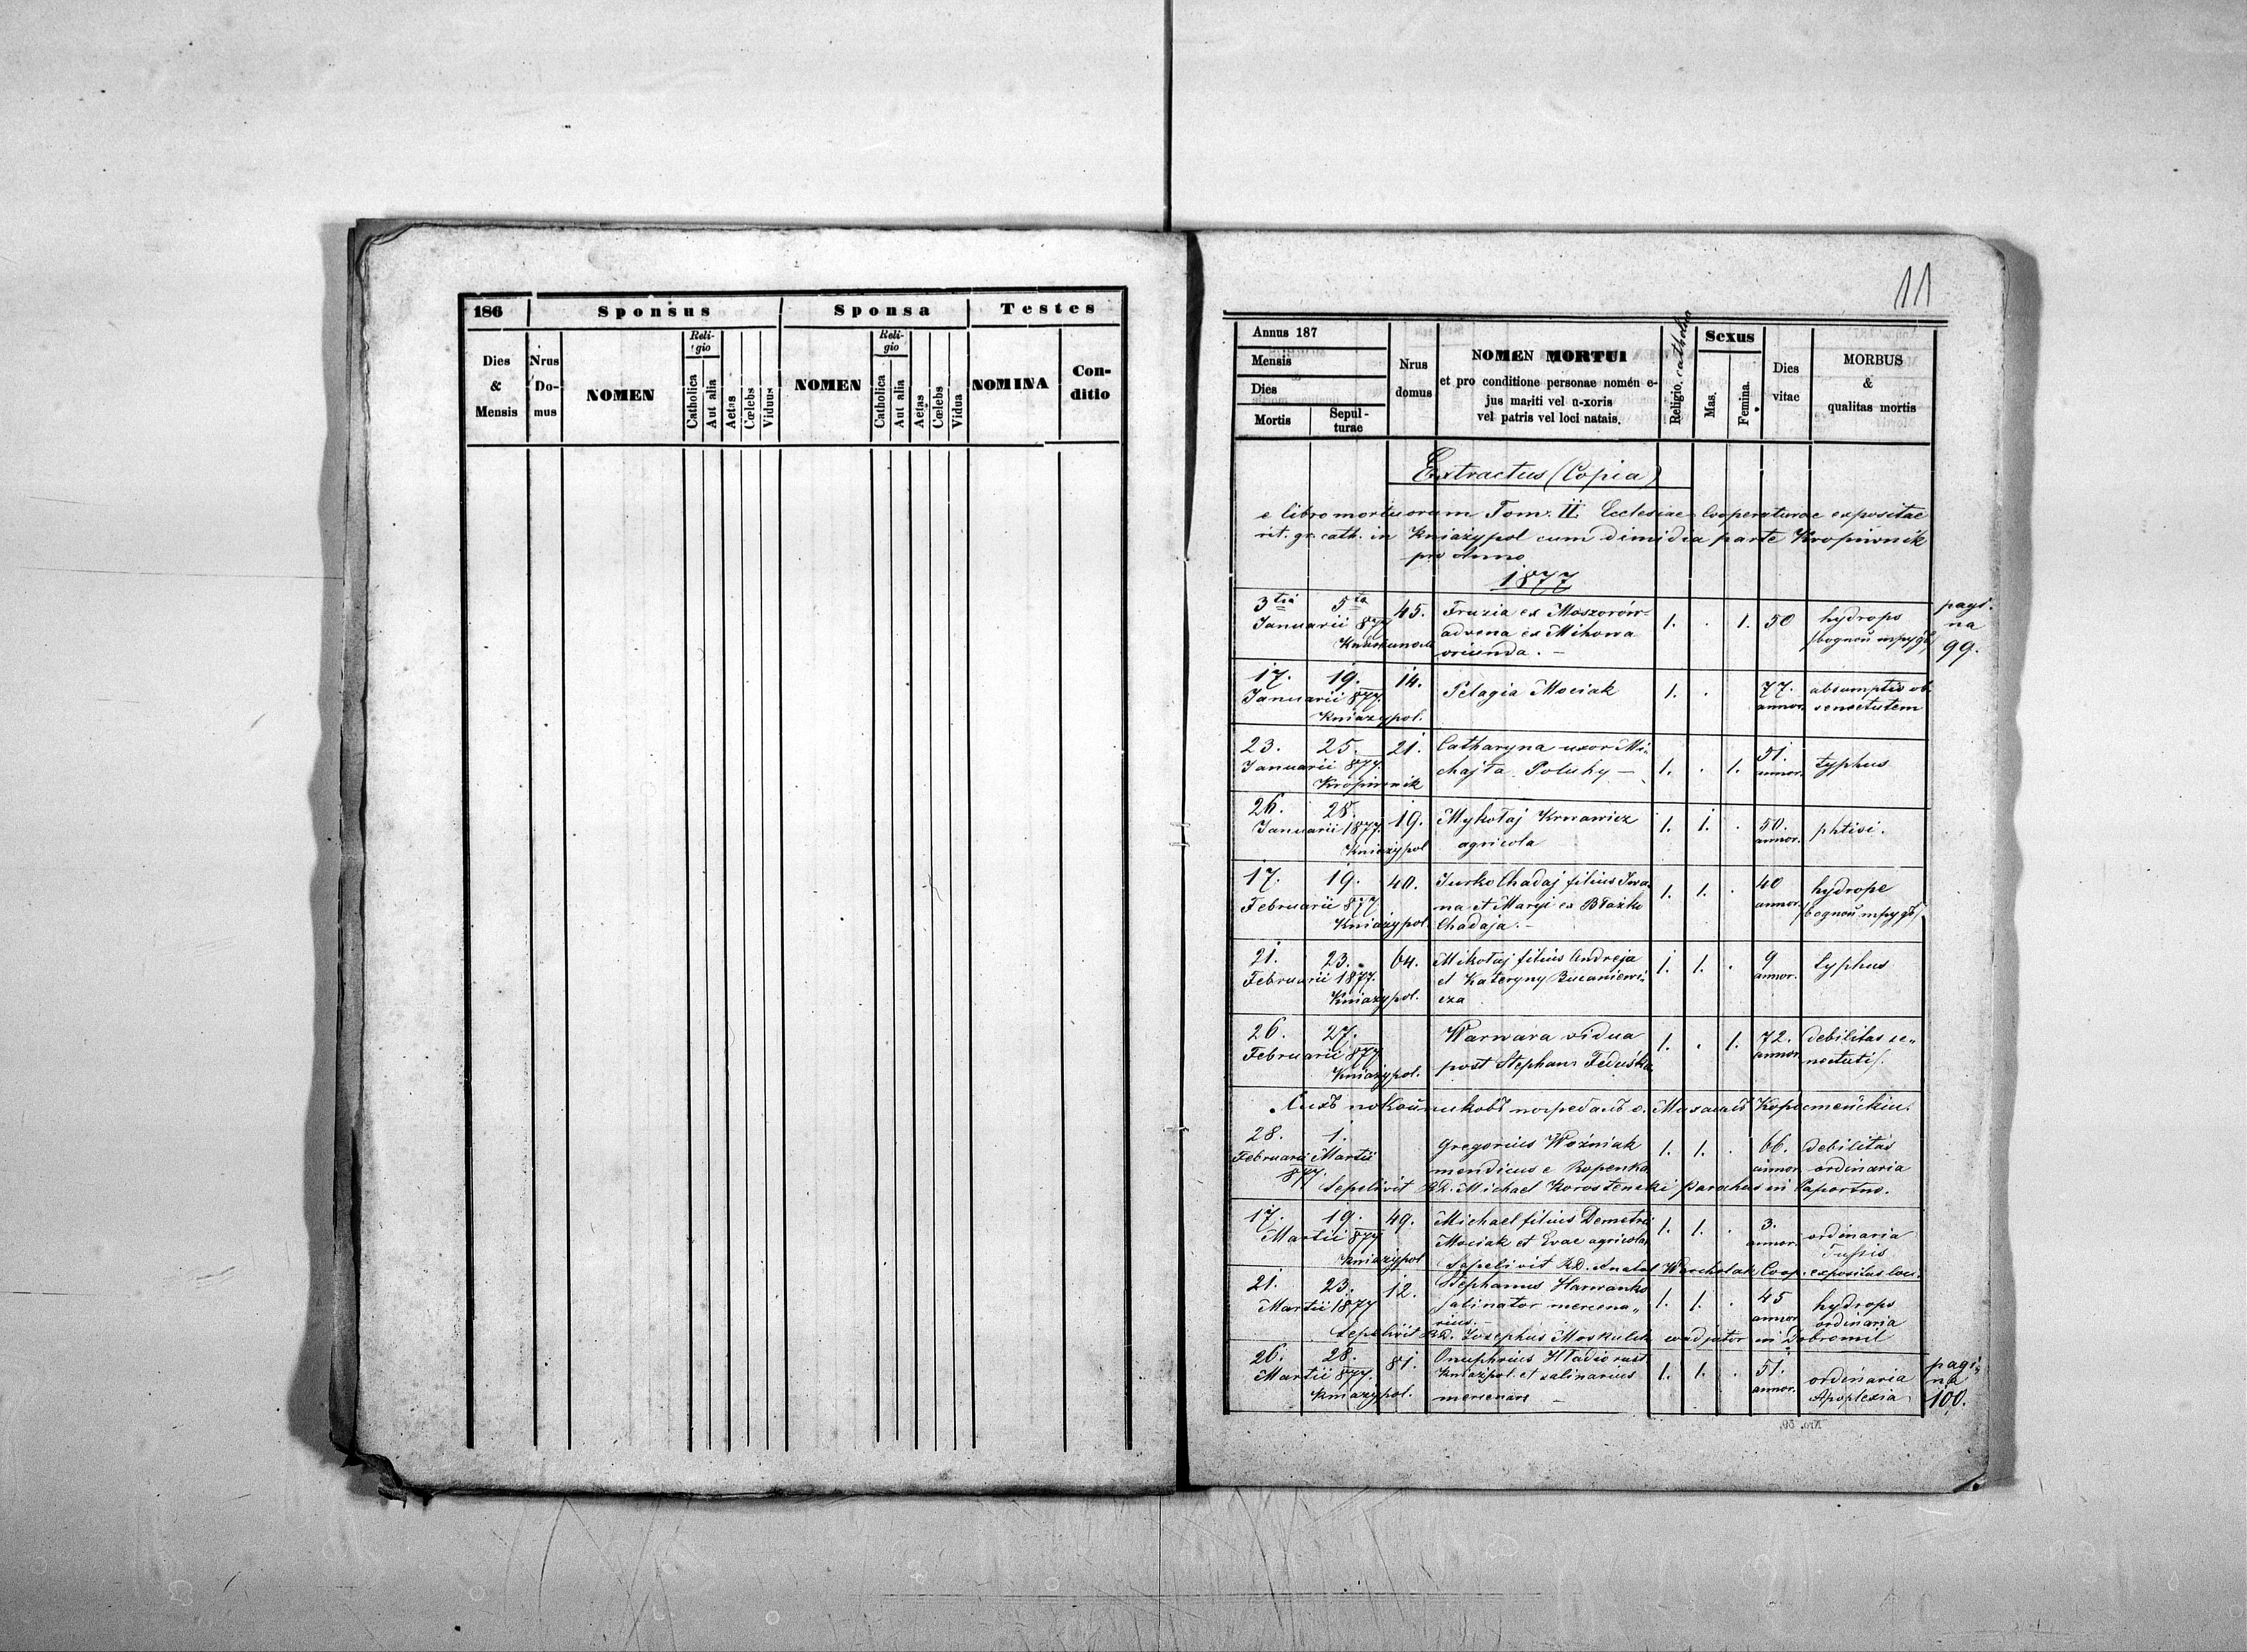 186
Sponsus
Sponsa
Testes
Dies & Mensis
Nrus Do-mus
NOMEN
Reli-gio
Catholica
Aut alia
Aetas
Cœlebs
Viduus
NOMEN
Reli-gio
Catholica
Aut alia
Aetas
Cœlebs
Vidua
NOMINA
Con-ditio
11
Annus 187
Mensis
Dies
Mortis
Sepul-turae
Nrus domus
NOMEN MORTUI
et pro conditione personae nomén e-
jus mariti vel u-xoris
vel patris vel loci natais.
Religio. catholica
Sexus
Mas.
Femina.
Dies vitae
MORBUS
&
qualitas mortis
Extractus (Copia)
e libro mortuorum Tom. II. Ecclesiae Cooperaturae expositae
rit. gr. cath. in Kniażypol cum dimidia parte Kropiwnik
pro Anno
1877
3tia 5ta 45. Fruzia ex Moszorów- 1. . 1. 50 hydrops
Januarii 877 advena ex Mihowa
oriunda. —
pagi-
na
99.
17. 19. 14. Pelagia Mociak 1. . 77. absumptio ob
Januarii 877. annor. senectutem
Kniazypol.
23. 25. 21. Catharyna uxor Mi-
Januarii 877. chajła Poluhy — 1. . 1. 51. annor. typhus
Kropiwnik
26. 28. 19. Mykołaj Krwawicz 1. 1. . 50. phtisi.
Januarii 1877. agricola annor.
Kniażypol
17. 19. 40. Jurko Chadaj filius Iwa- 1. 1. . 40 hydrope
Februarii 877 na et Maryi ex Błażko annor.
Kniażypol. Chadaja. —
21. 23. 64. Mikołaj filius Andreja 1. 1. . 9 typhus
Februarii 1877. et Kateryny Bucaniewi- annor.
Kniazypol. cza
26. 27. Warwara vidua 1. . 1. 72. debilitas se-
Februarii 877 post Stephan Feduśko annor. nectutis.
Kniażypol.
28. 1. Gregorius Woźniak 1. 1. . 66. debilitas
Februarii Martii mendicus e Ropenka annor. ordinaria
877. Sepelivit RD. Michael Korostenski parochus in Paportno.
17. 19. 49. Michael filius Demetri 1. 1. . 3. ordinaria
Martii 877 Mociak et Evae agricola annor. Tussis
Kniażypol Sepelivit RD. Anatol Warcholak Coop. expositus loci.
21. 23. 12. Stephanus Harwanko 1. 1. . 45 hydrops
Martii 1877 salinator mercena- annor. ordinaria
rius. —
Sepelivit RD. Josephus Moskulek coadjutor in Dobromil
26. 28. 81. Onuphrius Hładio rust. 1. 1. . 51. ordinaria
Martii 877. Kniażpol. et salinarius annor. Apoplexia
Kniazypol. mercenars —
pagi-
na
100.
Nro. 56.